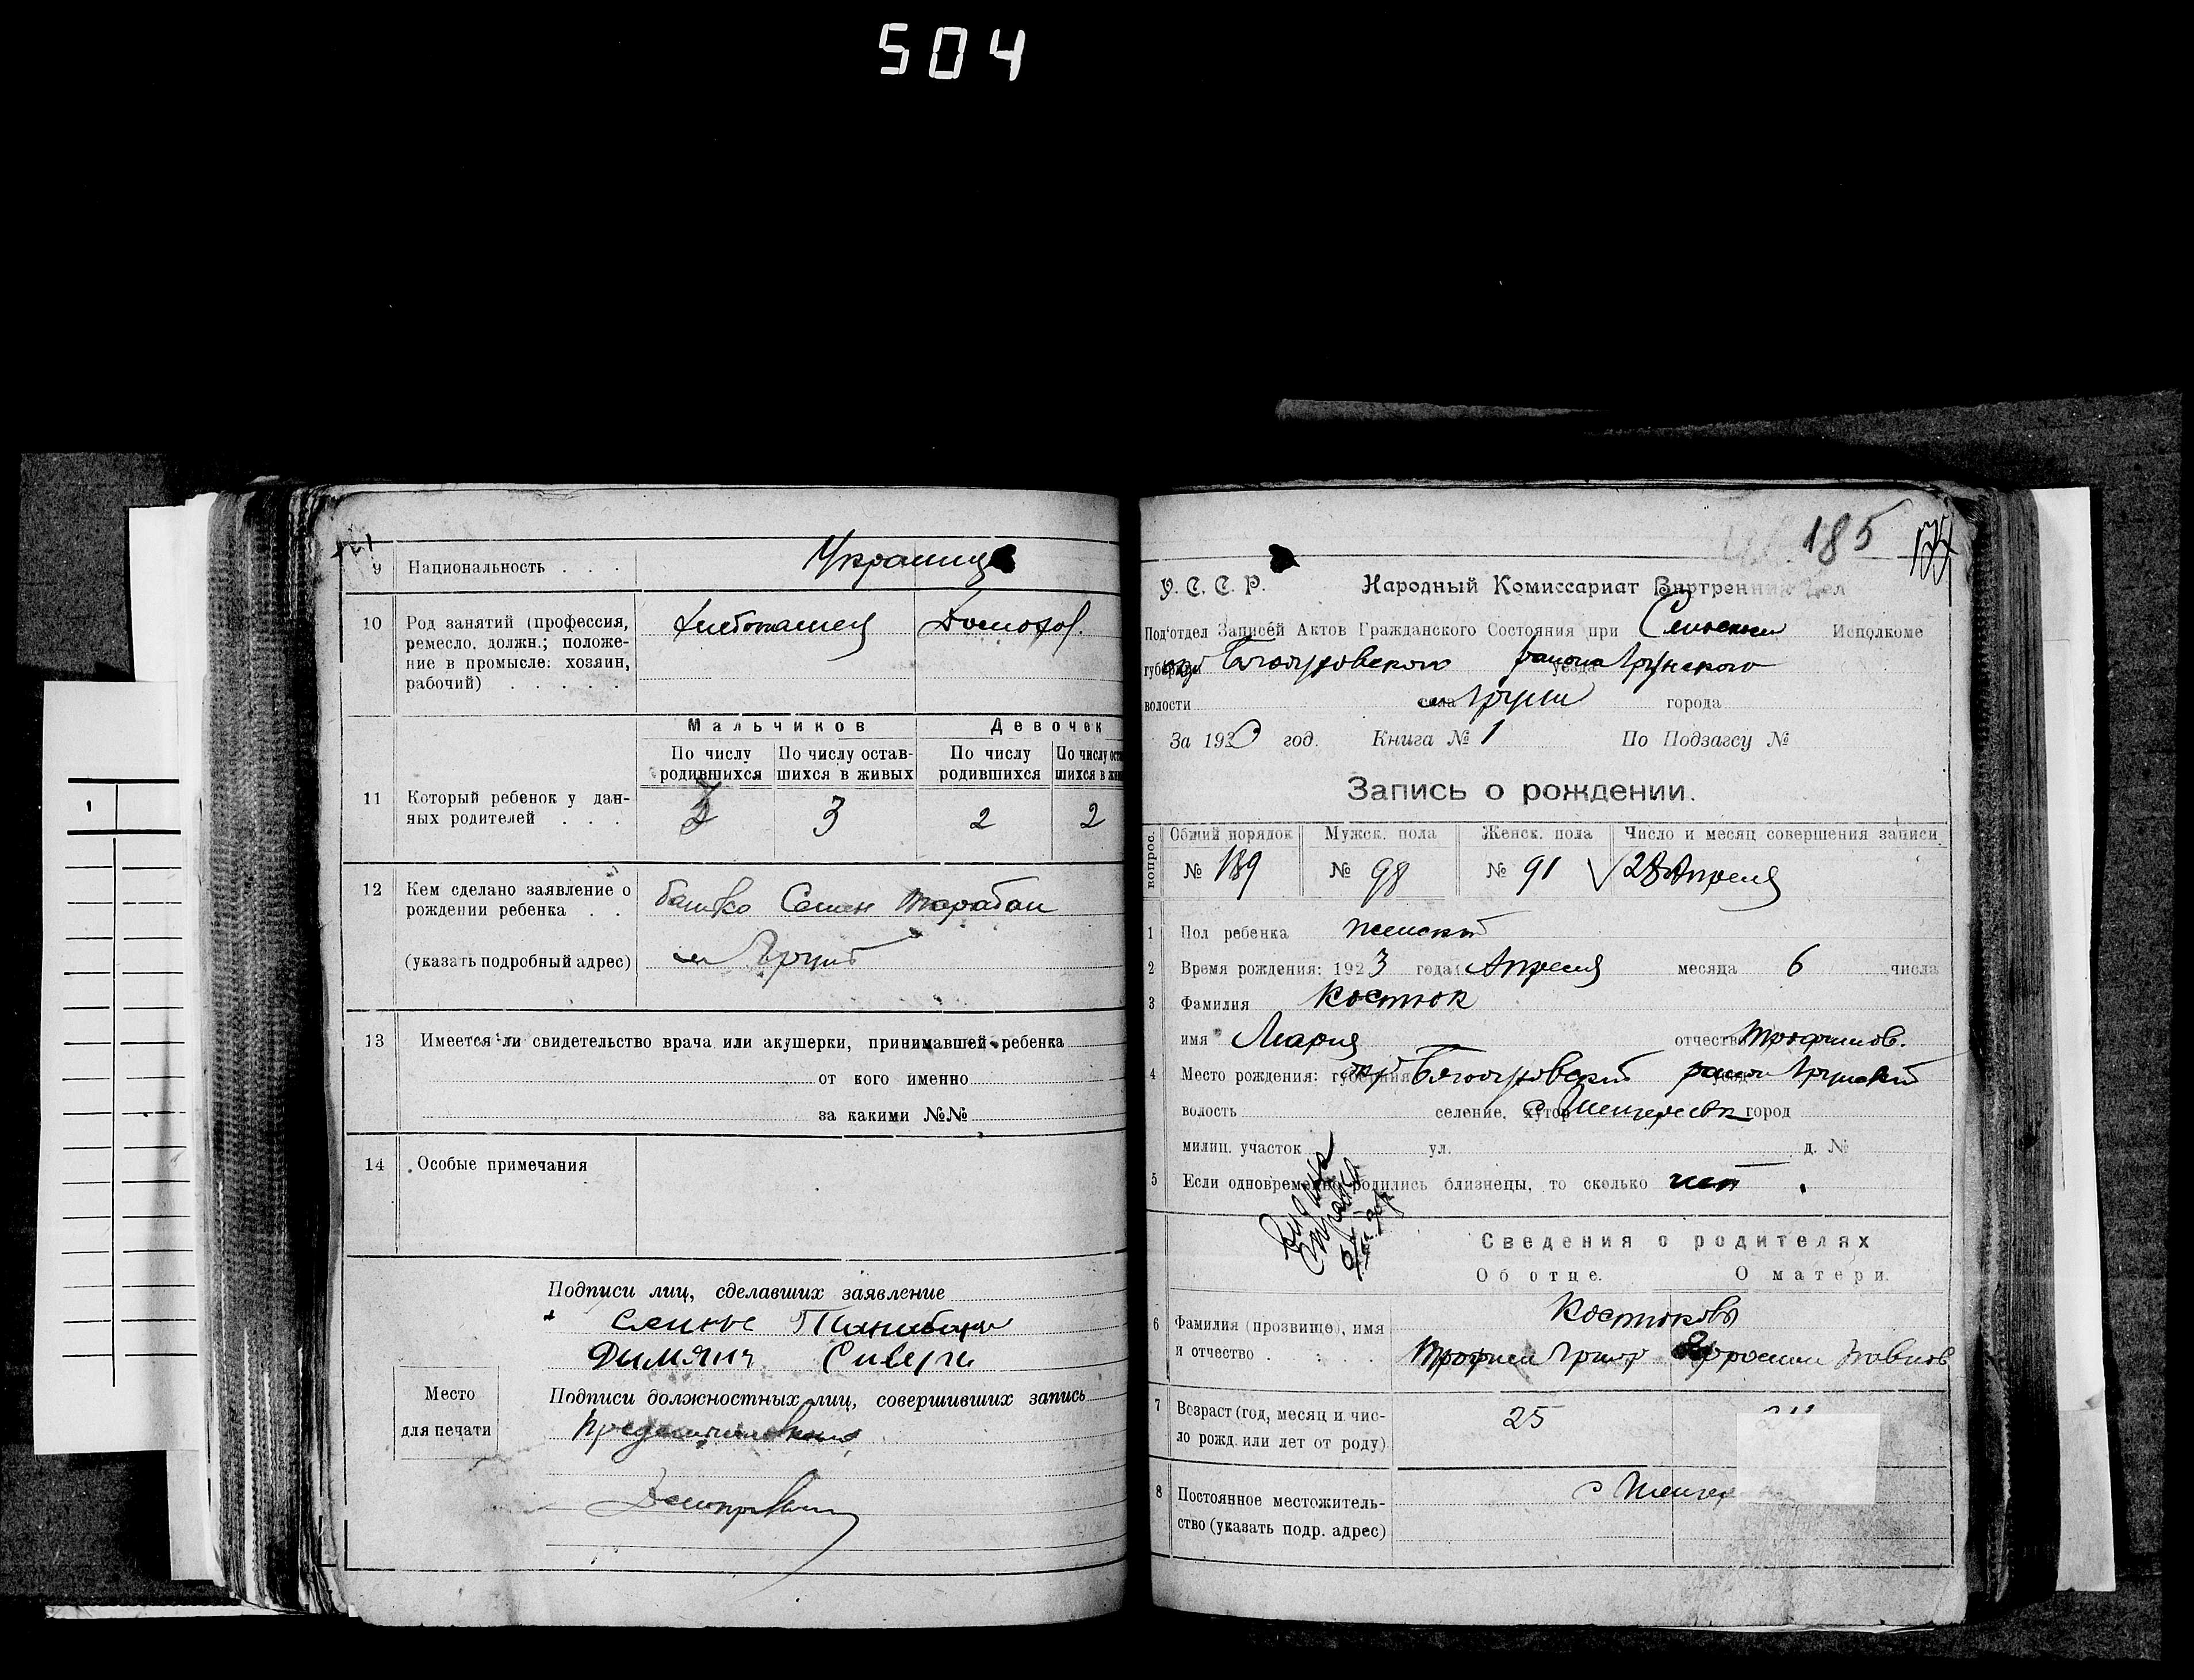 504
9 Национальность . . . Украинцы
10 Род занятий (профессия, ремесло, должн.; положение в промысле: хозяин, рабочий) . . . . . Хлебопашец Домохоз.
Мальчиков Девочек
По числу родившихся По числу оставшихся в живых По числу родившихся По числу
11 Который ребенок у данных родителей . . . 3 3 2 2
12 Кем сделано заявление о рождении ребенка . . батько Семен Тарабан
(указать подробный адрес) м Грунь
13 Имеется ли свидетельство врача или акушерки, принимавшей ребенка
от кого именно
за какими №№
14 Особые примечания
Подписи лиц, сделавших заявление
Место для печати
Подписи должностных лиц, совершивших запись
185
У. С. С. Р. Народный Комиссариат Внутренних Дел
Под'отдел Записей Актов Гражданского Состояния при Сельском Исполкоме
губернии окр Богодуховского уезда района Грунского
волости села Грунь города
За 1923 год. Книга № 1 По Подзагсу №
Запись о рождении.
вопрос. Общий порядок Мужск. пола Женск. пола Число и месяц совершения записи
№ 189 № 98 № 91 28 Апреля
1 Пол ребенка женский
2 Время рождения: 1923 года Апреля месяца 6 числа
3 Фамилия Костюк
имя Мария отчество Трофимов.
4 Место рождения: губерния окр Богодуховский район Грунский
волость селение, хутор город
милиц. участок ул. д. №
5 Если одновременно родились близнецы, то сколько нет
Сведения о родителях
Об отце. О матери.
Костюковы
6 Фамилия (прозвище), имя и отчество . . . Трофим Григор Ефросиния Павлов
7 Возраст (год, месяц и число рожд. или лет от роду) 25
8 Постоянное местожительство (указать подр. адрес)